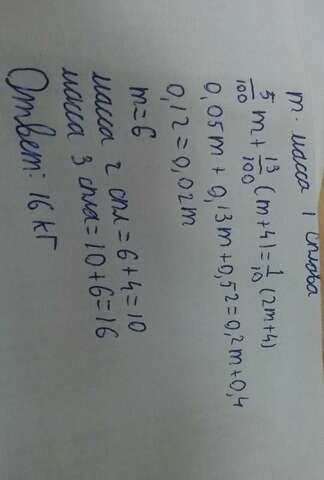 m - масса 1 сплава
5/100 m + 13/100 (m+4) = 1/10 (2m+4)
0,05m + 0,13m + 0,52 = 0,2m + 0,4
0,12 = 0,02m
m = 6
масса 2 спл = 6 + 4 = 10
масса 3 спла = 10 + 6 = 16
Ответ: 16 кг